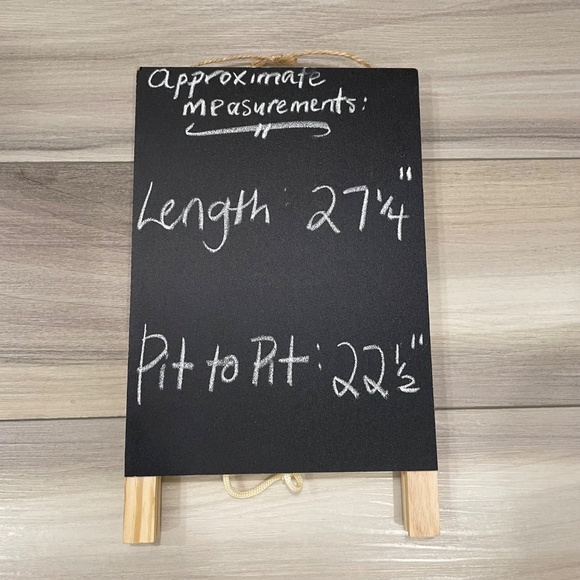 Approximate
measurements:
"
Length: 27 1/4"
Pit to Pit: 22 1/2"